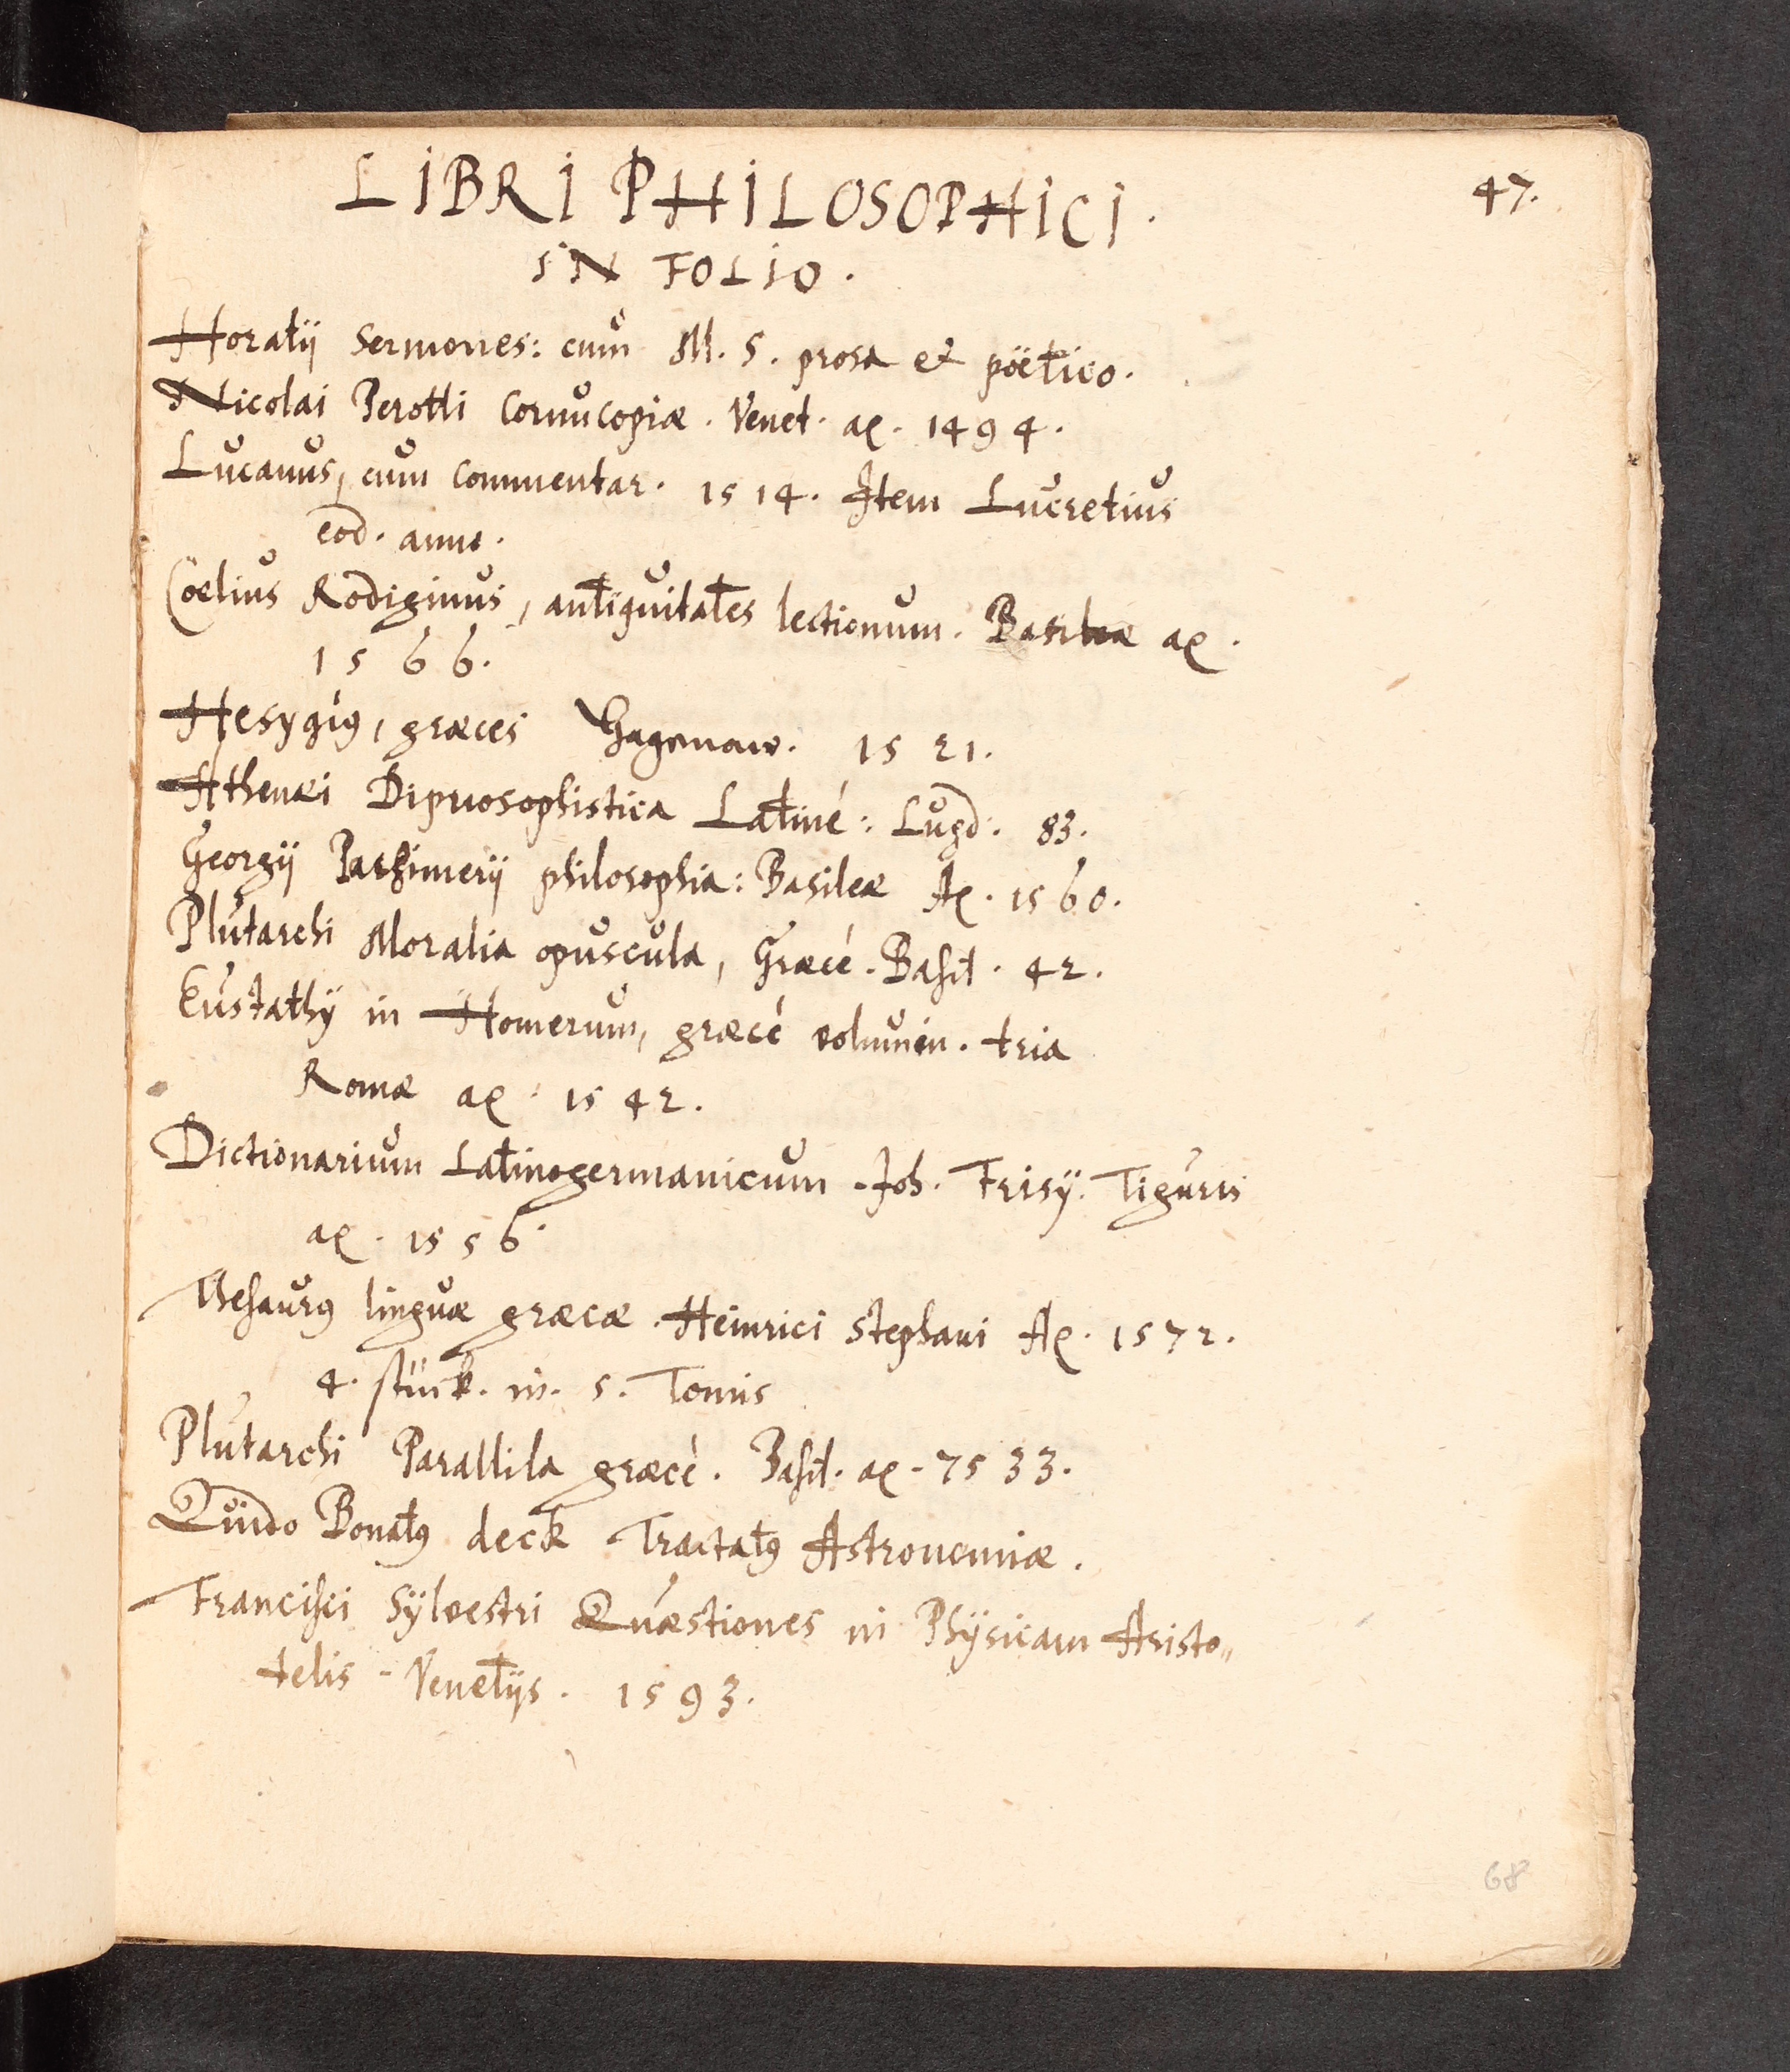 LIBRI PHILOSOPHICI.
47.
IN FOLIO.
Horatij Sermones: cum M. S. prosa et poëtico.
Nicolai Perotti Cornucopiæ. Venet. aō. 1494.
Lucanus, cum Commentar. 1514. Item Lucretius
eod. anno.
Coelius Rodiginus, antiquitates lectionum. Basileæ aō.
1566.
Hesygius, græces Hagenaw. 1521.
Athenæi Dipnosophistica Latiné: Lugd. 83.
Georgij Parhimerij philosophia: Basileæ Aō. 1560.
Plutarchi Moralia opuscula, Græcé. Basil. 42.
Eustathij in Homerum, græcé volumin. tria
Romæ aō. 1542.
Dictionarium Latinogermanicum. Joh. Frisij. Tiguris
aō. 1556.
Thesaurus linguæ græcæ. Heinrici Stephani Aō. 1572.
4. stück. in. 5. Tomis
Plutarchi Parallila græcé. Basil. aō. 7533.
Quido Bonatus deck Tractatus Astronomiæ.
Francisci Sylvestri Quæstiones in Physicam Aristo„
telis. Venetijs. 1593.
68